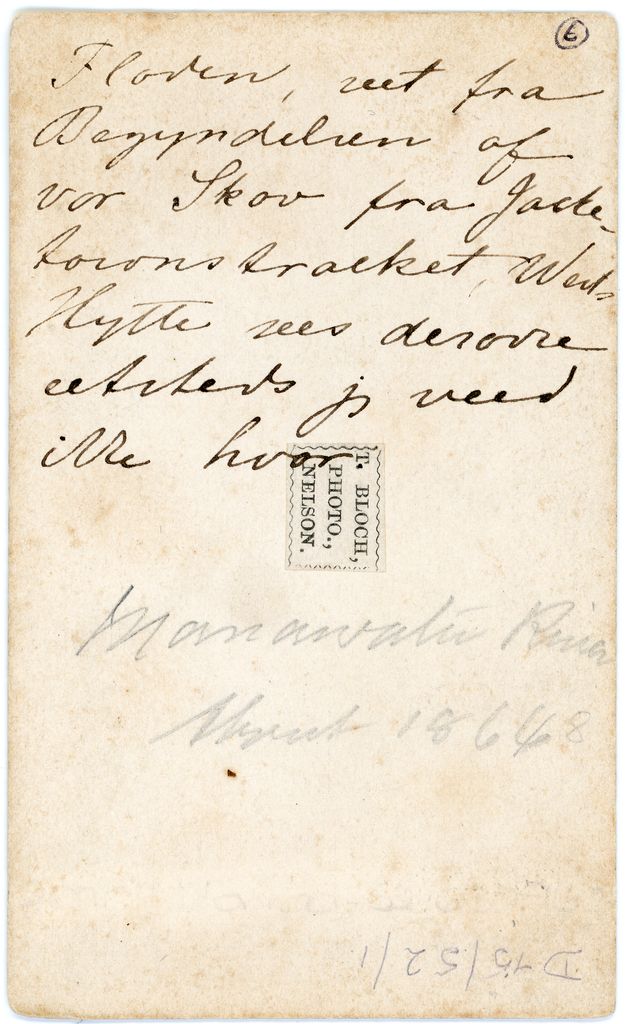 6
Floden, set fra
Begyndelsen af
vor Skov fra Jacke-
townstrackket, West's
Hytte sees derovre
etsteds jeg veed
ikke hvor
T. BLOCH,
PHOTO.,
NELSON.
Manawatu River
About 1864 8
D 15/52/1